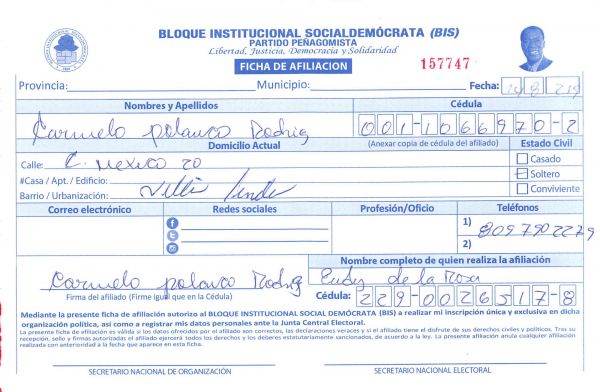 BLOQUE INSTITUCIONAL SOCIALDEMÓCRATA (BIS)
PARTIDO PEÑAGOMISTA
Libertad, Justicia, Democracia y Solidaridad
FICHA DE AFILIACION
157747
Provincia: Municipio: Fecha:
Nombres y Apellidos Cédula
Carmelo polanco Rodrig 001-1066970-2
Domicilio Actual (Anexar copia de cédula del afiliado) Estado Civil
Calle: C. Mexico 20 Casado
#Casa / Apt. / Edificio: Soltero
Barrio / Urbanización: Conviviente
Correo electrónico Redes sociales Profesión/Oficio Teléfonos
1) 8097902279
2)
Nombre completo de quien realiza la afiliación
Carmelo polanco Rodrig Eudy de la Rosa
Firma del afiliado (Firme igual que en la Cédula) Cédula: 229-0026517-8
Mediante la presente ficha de afiliación autorizo al BLOQUE INSTITUCIONAL SOCIAL DEMÓCRATA (BIS) a realizar mi inscripción única y exclusiva en dicha
organización política, así como a registrar mis datos personales ante la Junta Central Electoral.
La presente ficha de afiliación es válida si los datos ofrecidos por el afiliado son correctos, las declaraciones veraces y si el afiliado tiene el disfrute de sus derechos civiles y políticos. Tras su
recepción, sello y firmas autorizadas el afiliado ejercerá todos los derechos y los deberes estatutariamente sancionados, de acuerdo a la ley. La presente afiliación anula cualquier afiliación
realizada con anterioridad a la fecha que aparece en esta ficha.
SECRETARIO NACIONAL DE ORGANIZACIÓN SECRETARIO NACIONAL ELECTORAL